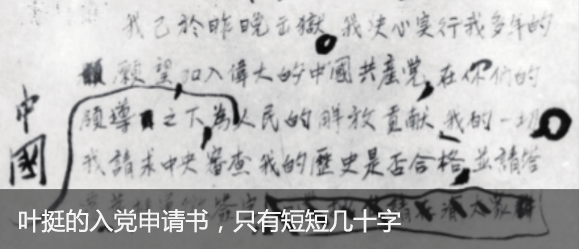 我已於昨晚出獄，我决心实行我多年的
願望，加入偉大的中國共產党，在你們的
領導之下，為人民的解放貢献我的一切
我請求中央審查我的歷史是否合格，並請答
中國
叶挺的入党申请书，只有短短几十字